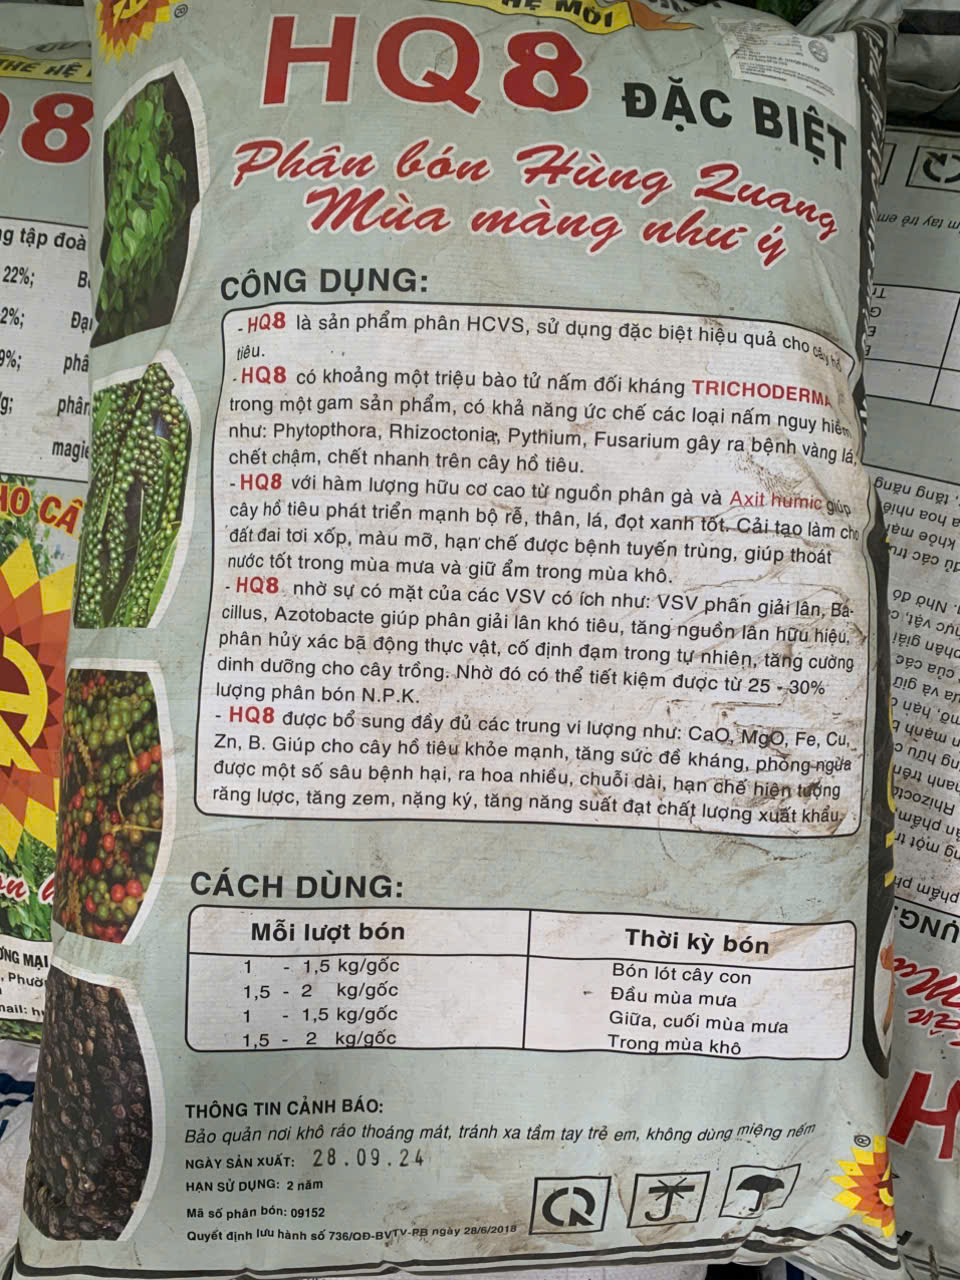 HỆ MỚI
HQ8 ĐẶC BIỆT
Phân bón Hùng Quang
Mùa màng như ý
CÔNG DỤNG:
- HQ8 là sản phẩm phân HCVS, sử dụng đặc biệt hiệu quả cho cây hồ
tiêu.
- HQ8 có khoảng một triệu bào tử nấm đối kháng TRICHODERMA
trong một gam sản phẩm, có khả năng ức chế các loại nấm nguy hiểm
như: Phytopthora, Rhizoctonia, Pythium, Fusarium gây ra bệnh vàng lá,
chết chậm, chết nhanh trên cây hồ tiêu.
- HQ8 với hàm lượng hữu cơ cao từ nguồn phân gà và Axit humic giúp
cây hồ tiêu phát triển mạnh bộ rễ, thân, lá, đọt xanh tốt. Cải tạo làm cho
đất đai tơi xốp, màu mỡ, hạn chế được bệnh tuyến trùng, giúp thoát
nước tốt trong mùa mưa và giữ ẩm trong mùa khô.
- HQ8 nhờ sự có mặt của các VSV có ích như: VSV phân giải lân, Ba-
cillus, Azotobacte giúp phân giải lân khó tiêu, tăng nguồn lân hữu hiệu,
phân hủy xác bã động thực vật, cố định đạm trong tự nhiên, tăng cường
dinh dưỡng cho cây trồng. Nhờ đó có thể tiết kiệm được từ 25 - 30%
lượng phân bón N.P.K.
- HQ8 được bổ sung đầy đủ các trung vi lượng như: CaO, MgO, Fe, Cu,
Zn, B. Giúp cho cây hồ tiêu khỏe mạnh, tăng sức đề kháng, phòng ngừa
được một số sâu bệnh hại, ra hoa nhiều, chuỗi dài, hạn chế hiện tượng
răng lược, tăng zem, nặng ký, tăng năng suất đạt chất lượng xuất khẩu.
CÁCH DÙNG:
Mỗi lượt bón Thời kỳ bón
1 - 1,5 kg/gốc Bón lót cây con
1,5 - 2 kg/gốc Đầu mùa mưa
1 - 1,5 kg/gốc Giữa, cuối mùa mưa
1,5 - 2 kg/gốc Trong mùa khô
THÔNG TIN CẢNH BÁO:
Bảo quản nơi khô ráo thoáng mát, tránh xa tầm tay trẻ em, không dùng miệng nếm
NGÀY SẢN XUẤT: 28.09.24
HẠN SỬ DỤNG: 2 năm
Mã số phân bón: 09152
Quyết định lưu hành số 736/QĐ-BVTV-PB ngày 28/6/2018
THẾ HỆ
8
tập đoà
22%;
2%;
9%;
phân
magiê